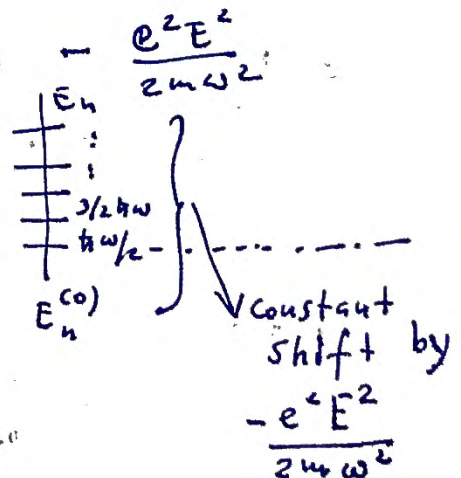 - e²E²
2mω²
Eₙ
3/2 ħω
ħω/2
Eₙ⁽⁰⁾
constant
shift by
- e²E²
2mω²